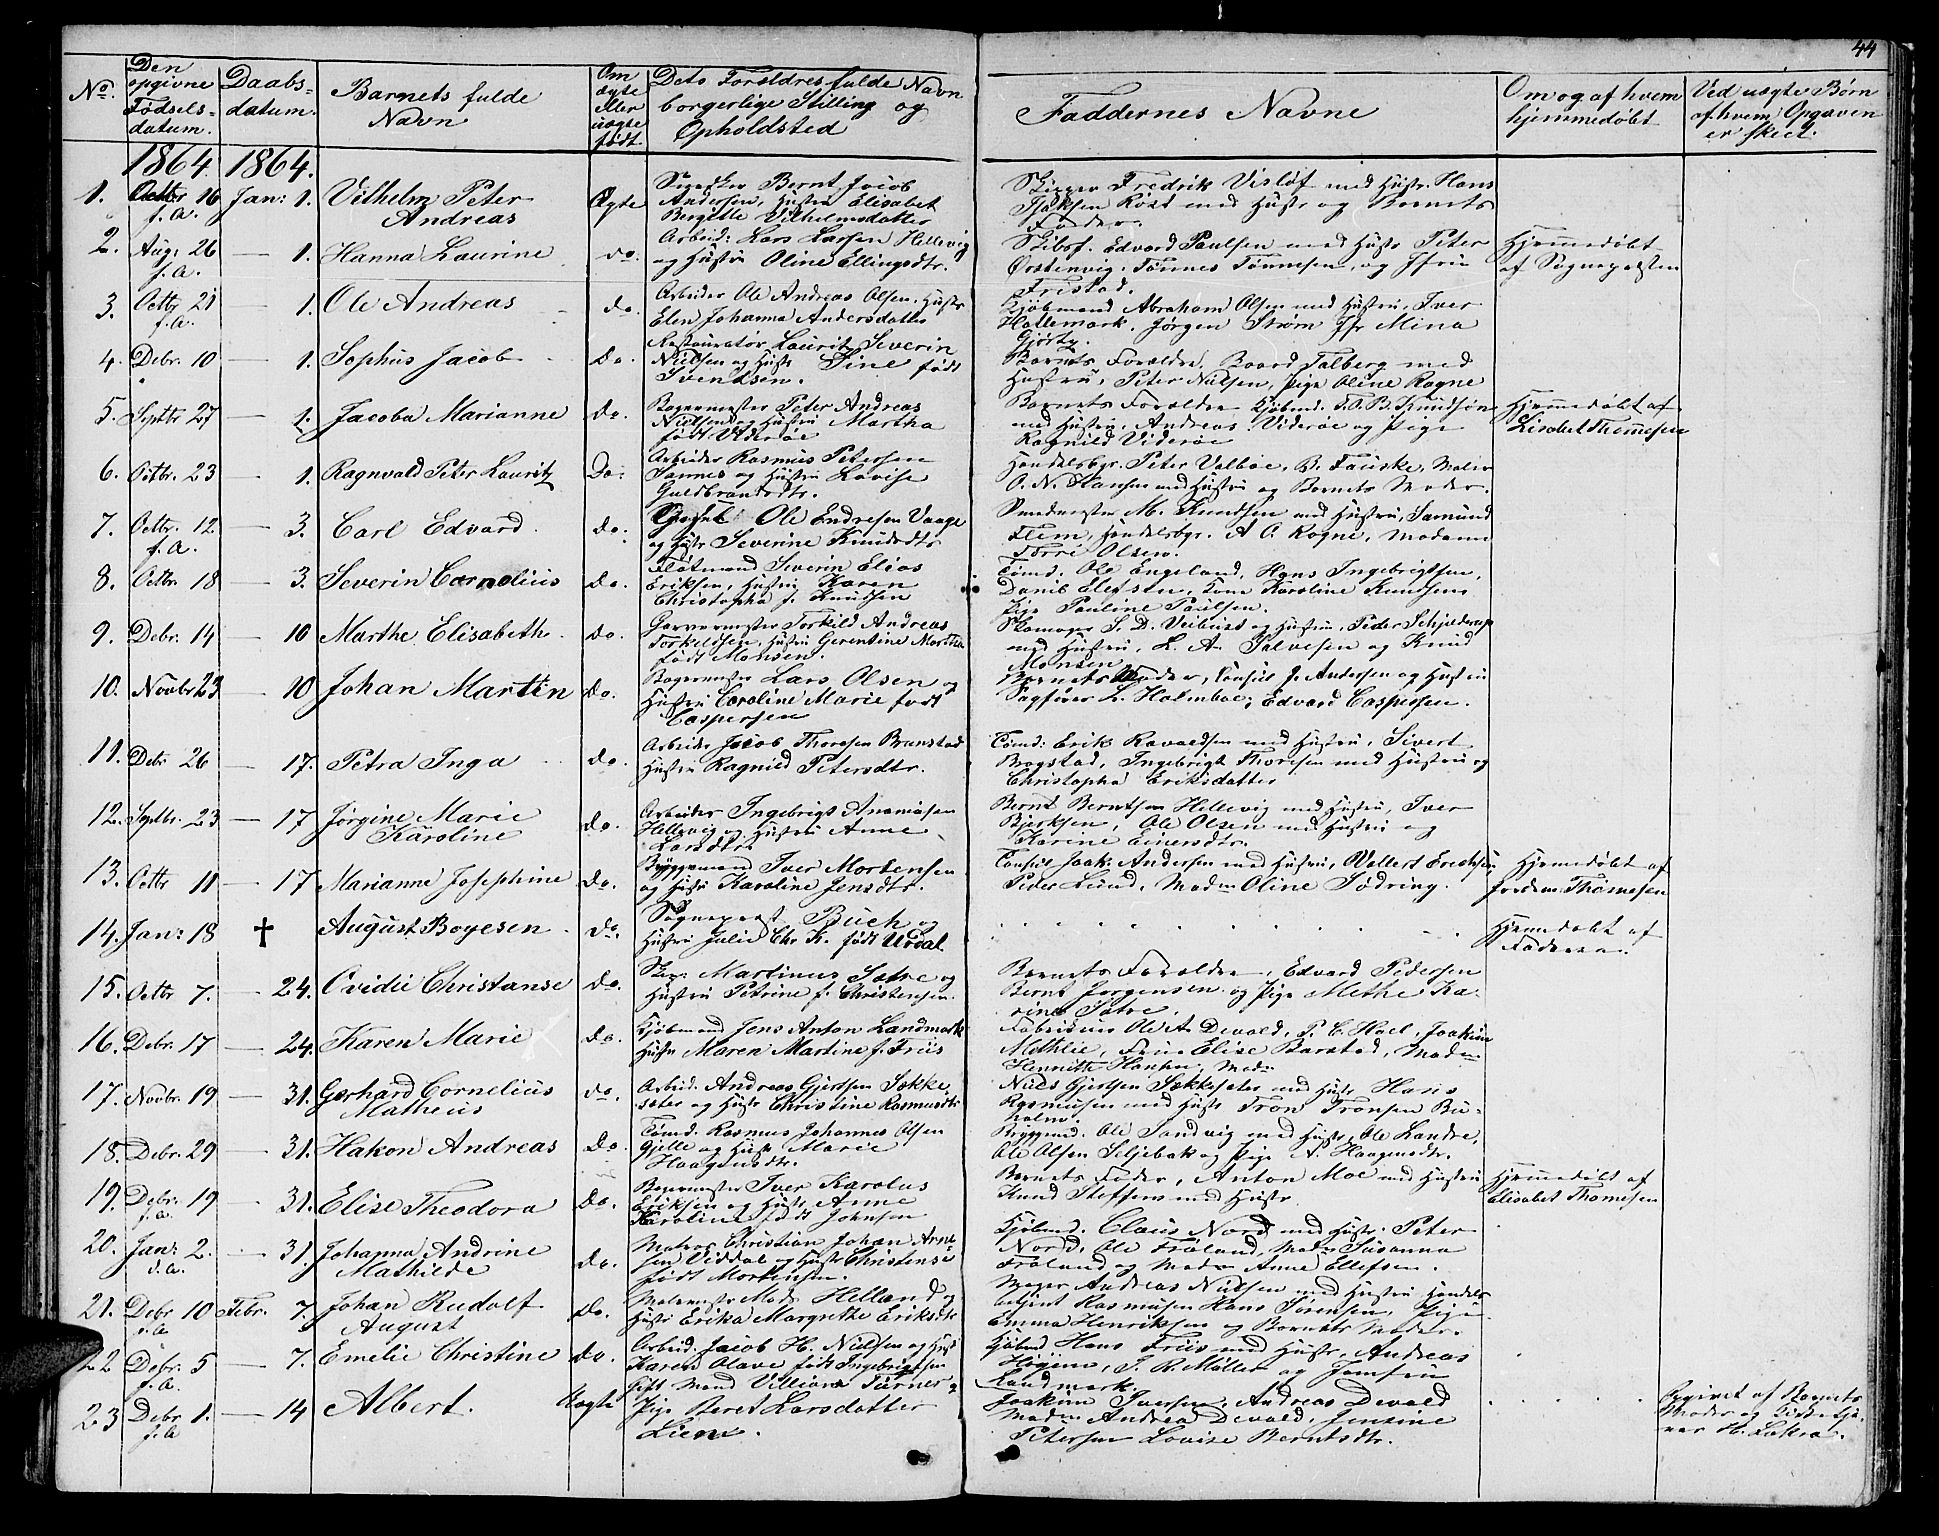 44
No.
Den opgivne Fødsels-datum.
Daabs-datum.
Barnets fulde Navn
Om ægte eller uægte født.
Dets Forældres fulde Navn borgerlige Stilling og Opholdsted
Faddernes Navne
Om og af hvem hjemmedøbt
Ved uægte Børn af hvem Opgaven er skeet.
1864. 1864.
1. Octbr 16 f.A. Jan: 1. Vilhelm Peter Andreas Ægte
Bernt Jacob
Andersen, Hustru Elisabet
Birgitte Vilhelmsdatter
Skipper Fredrik Visløf med Hustr. Hans
Isaksen Røsd med Hustr og Barnets
Fader.
2. Aug: 26 f.A. — 1. Hanna Laurine do.
Arbeid: Lars Larsen Hellevig
og Hustru Oline Ellingsdtr.
Skibsf. Edvard Paulsen med Hustr Peter
Ørstenvig, Tønnes Tønnesen, og Jfru
Fristad.
Hjemmedøbt
af Sognepresten
3. Octbr 21 f.A. — 1. Ole Andreas do.
Arbeider Ole Andreas Olsen, Hustr
Elen Johanna Andersdatter
Kjøbmand Abraham Olsen med Hustru, Iver
Hattemark, Jørgen Strøm Jfr Mina
4. Debr. 10 — 1. Sophus Jacob Do.
Restauratør Lauritz Severin
Nielsen og Hustr Sine født
Svendsen.
Barnets Forældre, Baard Talberg med
Hustru, Peter Nielsen, Pige Oline Rogne
5. Septbr 27 — 1. Jacoba Marianne do.
Bagermester Peter Andreas
Nielsen og Hustru Martha
født Viderøe
Barnets Forældre Kjøbmd. F.O.B. Knudsen
med Hustru, Andreas Viderøe og Pige
Ragnild Viderøe
Hjemmedøbt af
Lisabet Thomesen
6. Octbr. 23 — 1. Ragnvald Peter Lauritz Do.
Arbeider Rasmus Petersen
Sannes og Hustru Lovise
Guldbrandsdtr.
Handelsbgr. Peter Valbøe, B. Fauske, Maler
O. N. Hansen med Hustru og Barnets Moder.
7. Octbr. 12 f.A. — 3. Carl Edvard do.
Ole Endresen Vaage
og Hustr Severine Knudsdtr
Smedmester M. Knudsen med Hustru, Samund
Flem, Handelsbgr. A O. Rogne, Madame
Torri Olsen.
8. Octbr 18 — 3. Severin Cornelius do.
Flotmand Severin Elias
Eriksen, Hustru Karen
Christopha f. Knudsen
Tømd. Ole Engeland, Hans Ingebrigtsen,
Danil Elefsen, Kone Karoline Knudsen,
Pige Pauline Paulsen.
9. Debr. 14 — 10 Marthe Elisabeth do.
Garvermester Torkild Andreas
Torkeldsen, Hustru Gerentine Martha
født Monsen.
Skomager S. D. Veiblust og Hustru, Peder Schjelderup
med Hustru, L. A. Salvesen og Knud
Monsen
10. Novbr 23 — 10 Johan Martin Do.
Bagermester Lars Olsen og
Hustru Caroline Marie født
Caspersen
Barnets Moder, Consul J. Andersen og Hustru
Sagfører L. Holmboe, Edvard Caspersen.
11. Debr 26 — 17. Petra Inga do.
Arbeider Jacob Thoresen Branstad
Hustru Ragnild Petersdtr.
Tømd: Erik Ravaldsen med Hustru, Sivert
Brogstad, Ingebrigt Thoresen med Hustru og
Christopha Eriksdatter
12. Septbr. 23 — 17 Jørgine Marie Karoline Do.
Arbeider Ingebrigt Ananiasen
Hellevig og Hustru Anne
Larsdtr
Bernt Berntsen Hellevig med Hustru, Iver
Bjerksen, Ole Olsen med Hustru og
Karine Einersdtr.
13. Octbr 11 — 17 Marianne Josephine Do.
Byggemand Iver Mortensen
og Hustr Karoline Jensdtr.
Consul Joak. Andersen med Hustru, Vollert Erichsen,
Peder Lund, Madm Oline Sødring.
Hjemmedøbt af
Jordem. Thomesen
14. Jan: 18 † August Boyesen do.
Sognepræst Buch og
Hustru Julie Chr. K. født Urdal
Hjemmedøbt af
Faderen.
15. Octbr 7. — 24. Ovidie Christanse do.
Skip. Martinus Sætre og
Hustru Petrine f. Christensen.
Barnets Forældre, Edvard Pedersen
Bernt Jørgensen og Pige Methe Ka-
rine Sætre.
16. Debr. 17 — 24. Karen Marie do.
Kjøbmand Jens Anton Landmark
Hustr Maren Martine f. Friis
Fabrikeur Ole A Devold, P. C. Hoel, Joakim
Methlie, Frue Elise Barstad, Madm
Henritte Hansen, Madm
17. Novbr. 19 — 31. Gerhard Cornelius Matheus do.
Arbeid. Andreas Gjertsen Sække-
sæter og Hustr Christine Rasmusdtr
Niels Gjertsen Sækkesæter med Hustr Hans
Rasmusen med Hustr Tron Tronsen Bu-
holm.
18. Debr. 29 — 31. Hakon Andreas Do.
Tømd. Rasmus Johannes Olsen
Gjelle og Hustr Marie
Haagensdtr.
Byggmd. Ole Sandvig med Hustr, Ole Landre,
Ole Olsen Siljebak og Pige A. Haagensdtr.
19. Debr. 19 f.A. — 31. Elise Theodora Do.
Bagermester Iver Karolus
Eriksen og Hustr Anne
Karoline født Johnsen
Barnets Fader, Anton Moe med Hustru
Knud Steffens med Hustr
Hjemmedøbt af
Elisabet Thomesen
20. Jan: 2. d.A. — 31. Johanna Andrine Mathilde do.
Matros Christian Johan Arnt-
sen Viddal og Hustr Christense
født Mortensen.
Kjøbmd. Claus Nord med Hustr. Peter
Nord, Ole Frøland, Madm Susanna
Frøland og Madm Anne Ellefsen.
21. Debr 10 f.A. Febr. 7. Johan Rudolf August Do.
Malermstr Mads Helland og
Hustr Erika Margrethe Eriksdtr
Mægler Andreas Nielsen med Hustru Handels
Rasmusen Hans Sørensen, Pige
Emma Henriksen og Barnets Moder.
22 Debr. 5 f.A. — 7. Emelie Christine do.
Arbeid. Jacob H. Nielsen og Hust
Karen Olave født Ingebrigtsen
Kjøbmd Hans Friis med Hustr, Andreas
Høgem, J. R. Møller og Jomfru
Landmark.
23 Debr 1. f.A. — 14 Albert. Uægte
Gift Mand Villiam Turner og
Pige Beret Larsdatter
Lien.
Joakim Iversen, Andreas Devold
Madm. Andrea Devold, Jensine
Petersen Lovise Berntsdtr.
Opgivet af Barnets
Moder og Kirketje-
ner H.